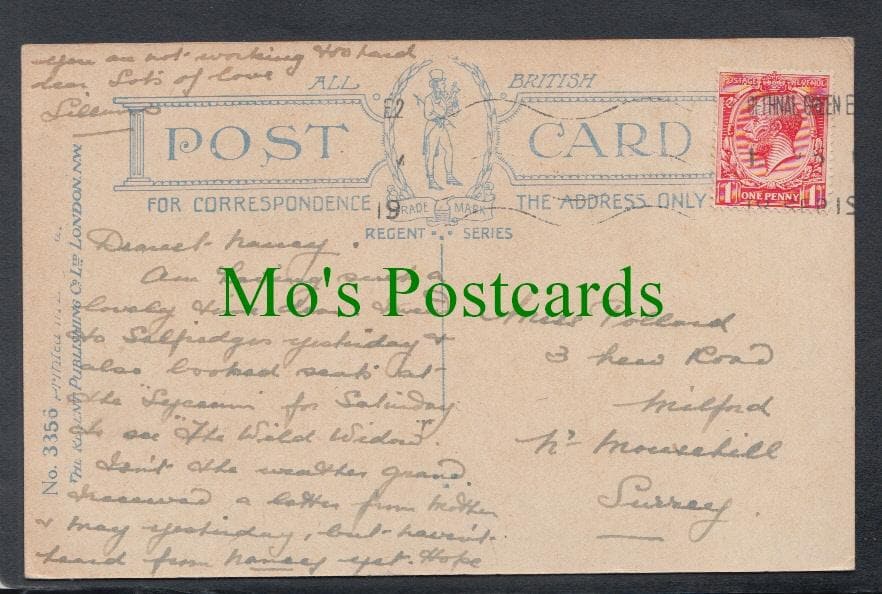 you are not working too hard
dear Lots of love
Lillian
ALL BRITISH
POST CARD
FOR CORRESPONDENCE THE ADDRESS ONLY
TRADE MARK
REGENT SERIES
E2
19
POSTAGE REVENUE
BETHNAL GREEN E
ONE PENNY
1 1
1919
No. 3356 Printed
THE REGENT PUBLISHING Co Ltd LONDON. N.W.
Dearest Nancy.
Am having such a
lovely time dear
to Selfridges yesterday &
also booked seats at
the "Lyceum" for Saturday
to see "The Wild Widow".
Isn't the weather grand
I received a letter from Mother
& May yesterday, but haven't
heard from Nancy yet. Hope
Miss Pollard
3 New Road
Milford
Nr Mousehill
Surrey.
Mo's Postcards